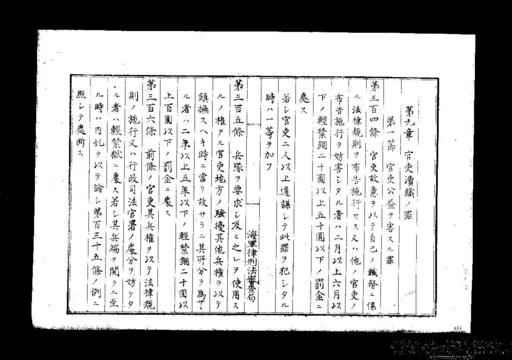 第九章 官吏瀆職ノ罪
第一節 官吏公益ヲ害スル罪
第三百四條 官吏故意ヲ以テ自己ノ職務ニ係
ル法律規則ヲ布告施行セス又ハ他ノ官吏ノ
布告施行ヲ妨害シタル者ハ二月以上六月以
下ノ輕禁錮二十圓以上五十圓以下ノ罰金ニ
處ス
若シ官吏二人以上通謀シテ此罪ヲ犯シタル
時ハ一等ヲ加フ
海軍律刑法審査局
第三百五條 兵隊ヲ要求シ及ヒ之レヲ使用ス
ルノ權アル官吏地方ノ騒擾其他兵權ヲ以テ
鎮撫スヘキ時ニ當リ故サラニ其所分ヲ為サヽ
ル者ハ二年以上五年以下ノ輕禁錮二十圓以
上百圓以下ノ罰金ニ處ス
第三百六條 前條ノ官吏其兵權ヲ以テ法律規
則ノ施行又ハ行政司法官署ノ處分ヲ妨ケタ
ル者ハ輕禁獄ニ處ス若シ其兵端ヲ開クニ至
ル時ハ内乱ヲ以テ論シ第百三十五條ノ例ニ
照シテ處断ス